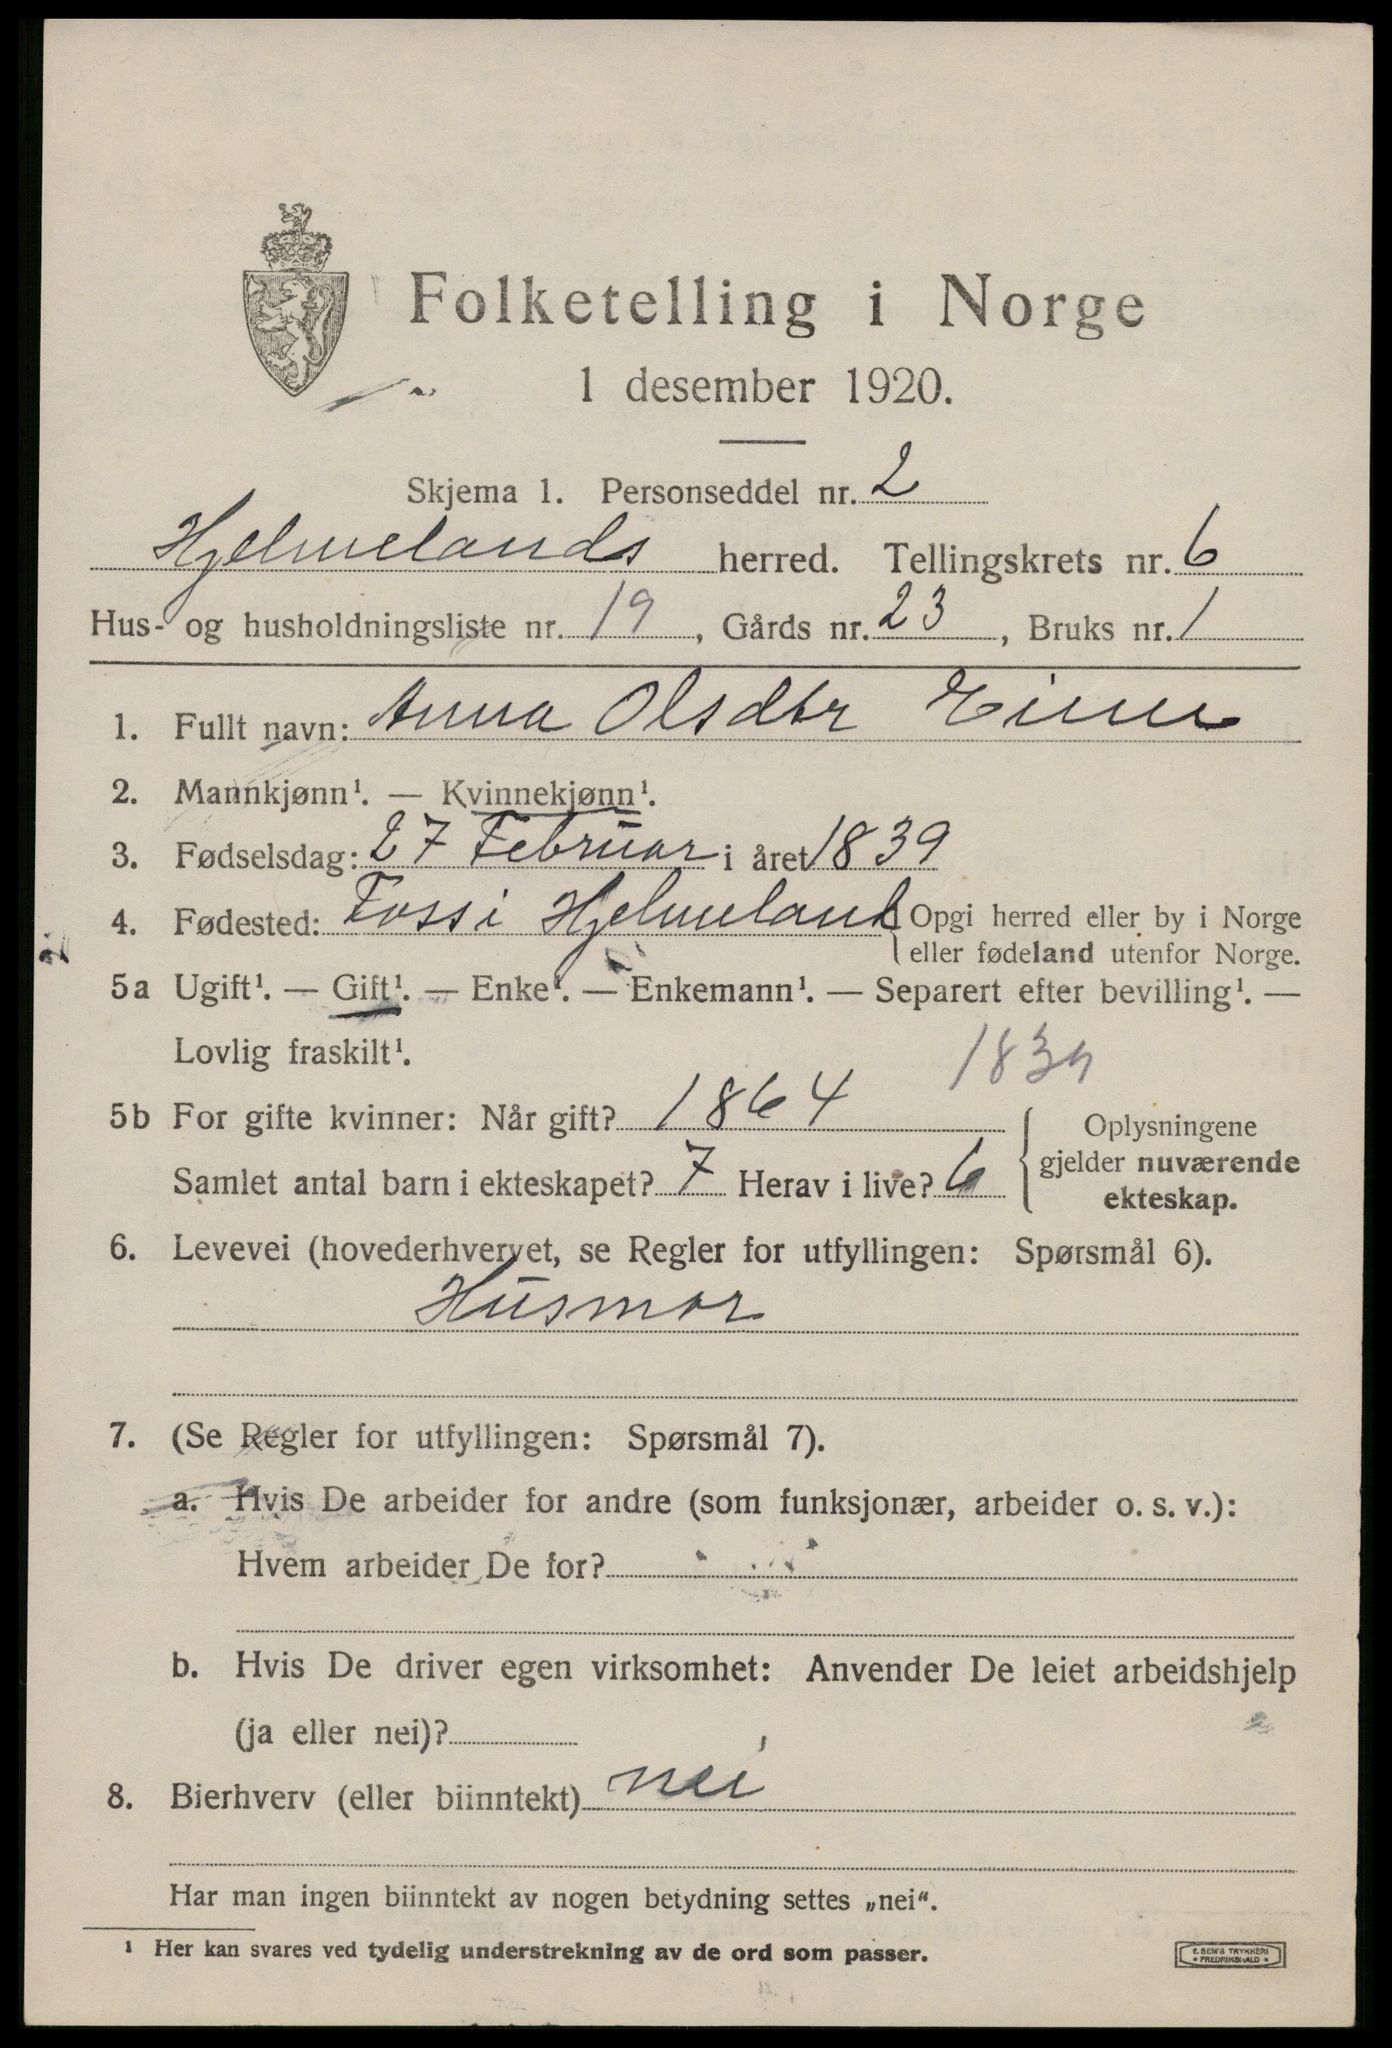 Folketelling i Norge
1 desember 1920.
Skjema 1. Personseddel nr. 2
Hjelmelands herred. Tellingskrets nr. 6
Hus- og husholdningsliste nr. 19, Gårds nr. 23, Bruks nr. 1
1. Fullt navn: Anna Olsdtr
2. Mannkjønn¹. — Kvinnekjønn¹.
3. Fødselsdag: 27 Februar i året 1839
4. Fødested: Foss i Hjelmeland { Opgi herred eller by i Norge
eller fødeland utenfor Norge.
5a Ugift¹. — Gift¹. — Enke¹. — Enkemann¹. — Separert efter bevilling¹. —
Lovlig fraskilt¹.
1839
5b For gifte kvinner: Når gift? 1864
Samlet antal barn i ekteskapet? 7 Herav i live? 6
Oplysningene
gjelder nuværende
ekteskap.
6. Levevei (hovederhvervet, se Regler for utfyllingen: Spørsmål 6).
Husmor
7. (Se Regler for utfyllingen: Spørsmål 7).
a. Hvis De arbeider for andre (som funksjonær, arbeider o. s. v.):
Hvem arbeider De for?
b. Hvis De driver egen virksomhet: Anvender De leiet arbeidshjelp
(ja eller nei)?
8. Bierhverv (eller biinntekt) nei
Har man ingen biinntekt av nogen betydning settes „nei“.
¹ Her kan svares ved tydelig understrekning av de ord som passer.
E. SEM'S TRYKKERI
• FREDRIKSHALD •